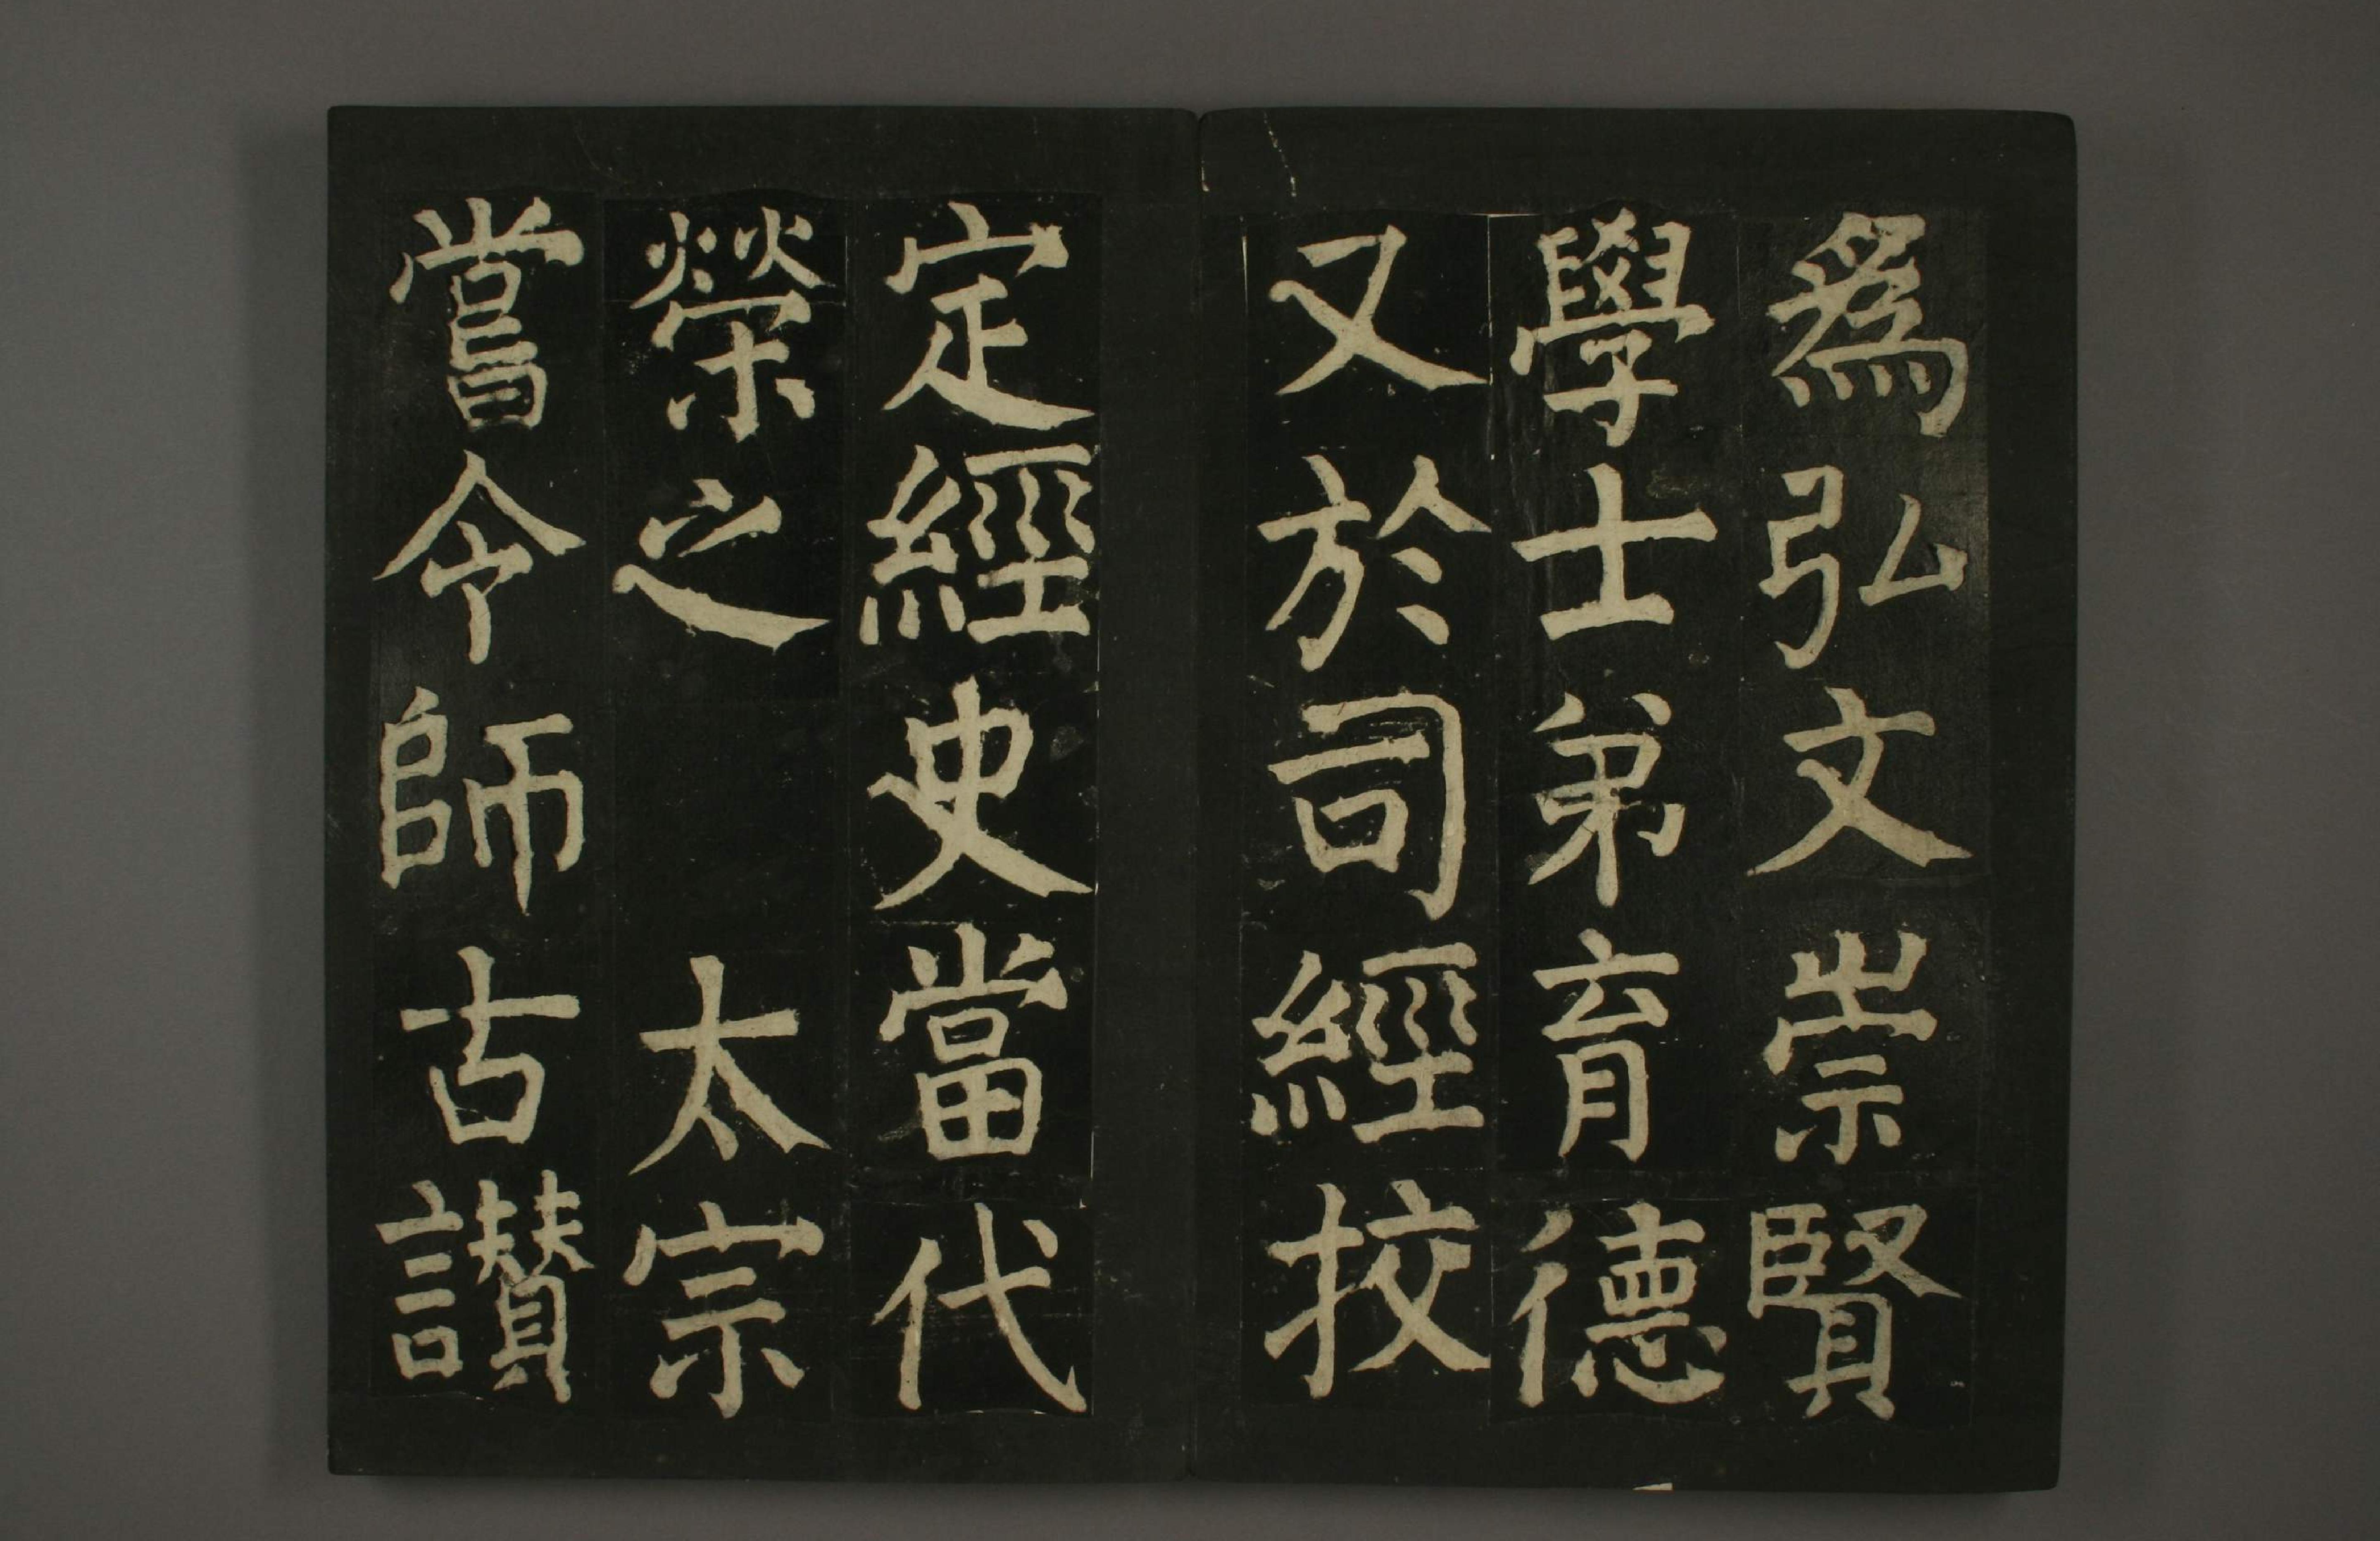 爲弘文崇賢
學士弟育德
又於司經挍
定經史當代
榮之　太宗
嘗令師古讃